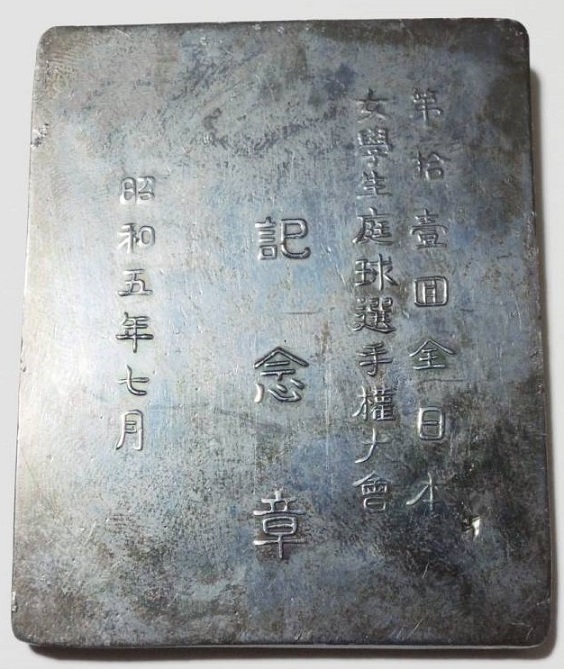 第拾壹囬全日本
女學生庭球選手權大會
記念章
昭和五年七月